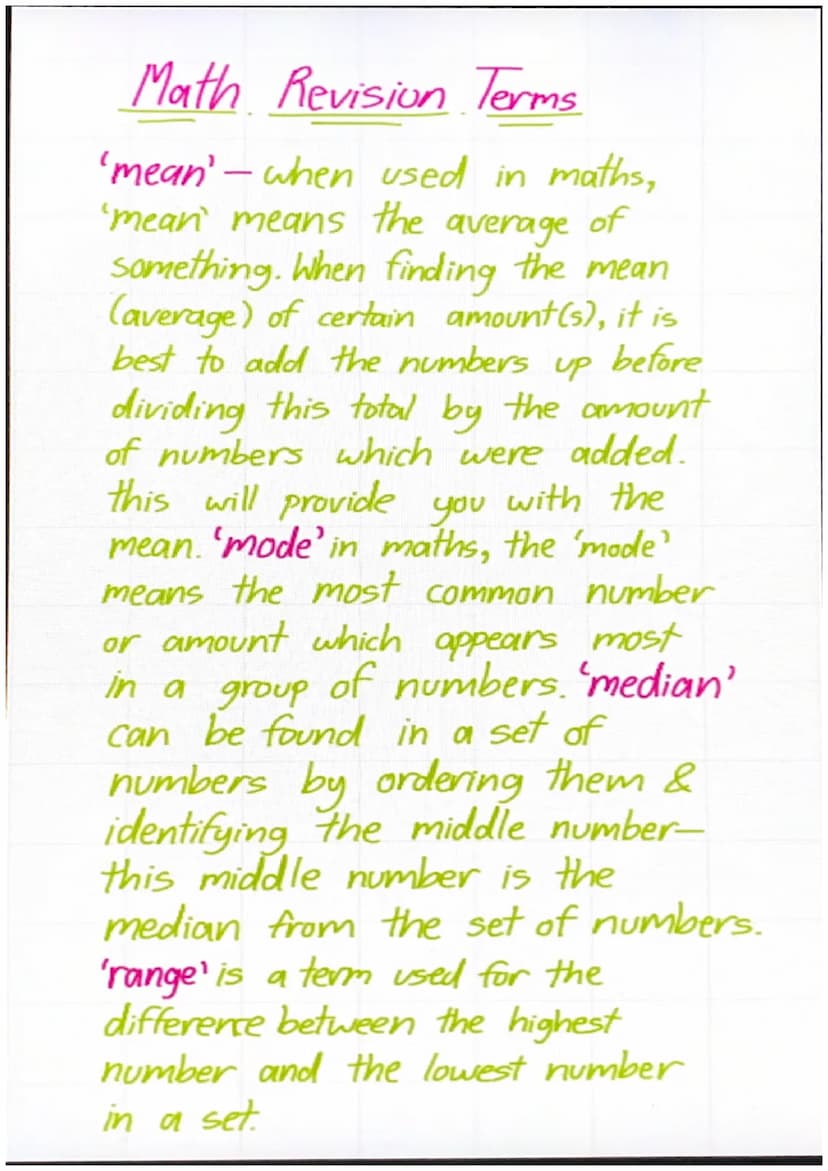 Math Revision Terms
'mean' — when used in maths,
'mean' means the average of
something. When finding the mean
(average) of certain amount(s), it is
best to add the numbers up before
dividing this total by the amount
of numbers which were added.
this will provide you with the
mean. 'mode' in maths, the 'mode'
means the most common number
or amount which appears most
in a group of numbers. 'median'
can be found in a set of
numbers by ordering them &
identifying the middle number—
this middle number is the
median from the set of numbers.
'range' is a term used for the
difference between the highest
number and the lowest number
in a set.